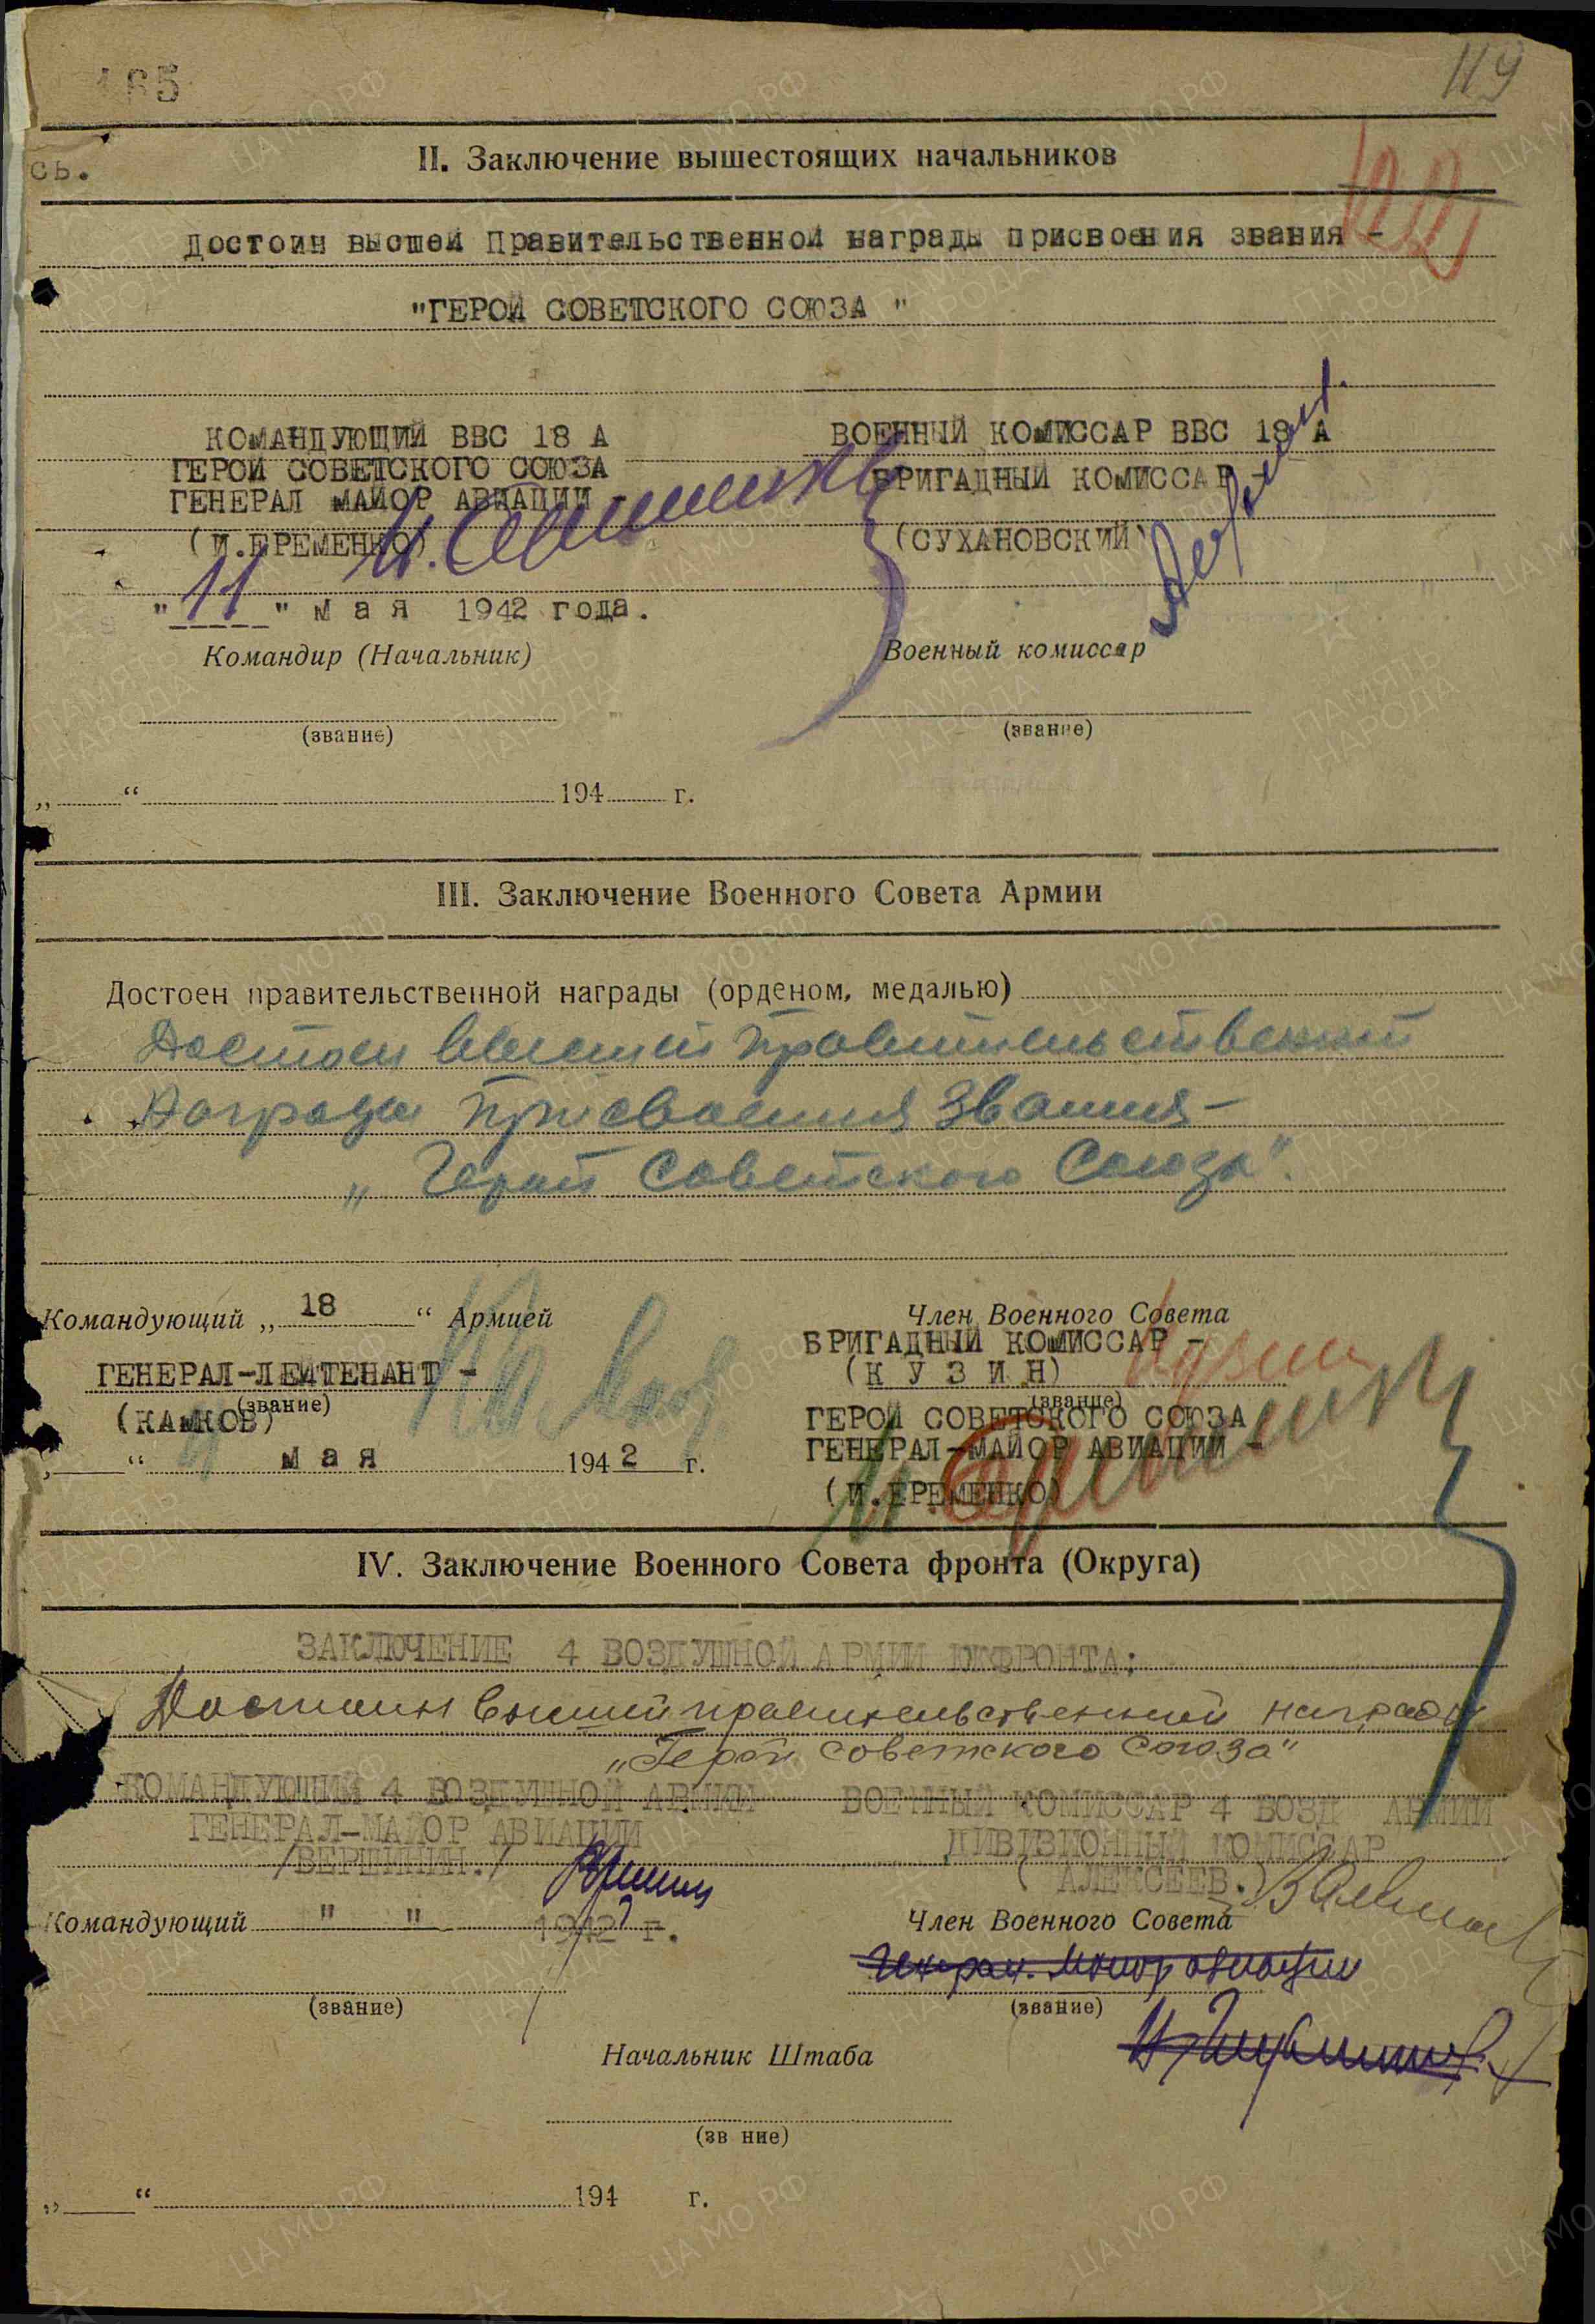 165
119
сь.
II. Заключение вышестоящих начальников
Достоин высшей Правительственной награды присвоения звания -
"ГЕРОЙ СОВЕТСКОГО СОЮЗА "
КОМАНДУЮЩИЙ ВВС 18 А
ГЕРОЙ СОВЕТСКОГО СОЮЗА
ГЕНЕРАЛ МАЙОР АВИАЦИИ -
(И.ЕРЕМЕНКО)
ВОЕННЫЙ КОМИССАР ВВС 18 А
БРИГАДНЫЙ КОМИССАР -
(СУХАНОВСКИЙ)
"11" м а я 1942 года.
Командир (Начальник)
Военный комиссар
(звание)
(звание)
„ “ 194 г.
III. Заключение Военного Совета Армии
Достоен правительственной награды (орденом, медалью)
Достоен высшей правительственной
награды присвоения звания –
„Герой Советского Союза".
Командующий „ 18 “ Армией
ГЕНЕРАЛ-ЛЕЙТЕНАНТ -
(звание)
(КАМКОВ)
„ “ м а я 1942 г.
Член Военного Совета
БРИГАДНЫЙ КОМИССАР -
(К У З И Н) Кузин
(звание)
ГЕРОЙ СОВЕТСКОГО СОЮЗА
ГЕНЕРАЛ-МАЙОР АВИАЦИИ -
(И.ЕРЕМЕНКО)
IV. Заключение Военного Совета фронта (Округа)
ЗАКЛЮЧЕНИЕ 4 ВОЗДУШНОЙ АРМИИ ЮЖФРОНТА:
Достоин высшей правительственной награды
„Герой Советского Союза"
КОМАНДУЮЩИЙ 4 ВОЗДУШНОЙ АРМИИ
ГЕНЕРАЛ-МАЙОР АВИАЦИИ
/ВЕРШИНИН./
ВОЕННЫЙ КОМИССАР 4 ВОЗД АРМИИ
ДИВИЗИОННЫЙ КОМИССАР
( АЛЕКСЕЕВ.)
Командующий " " 1942 г.
Член Военного Совета
Генерал. Майор авиации
(звание)
(звание)
Начальник Штаба
(зв ние)
„ “ 194 г.
ЦА МО.РФ
ПАМЯТЬ НАРОДА